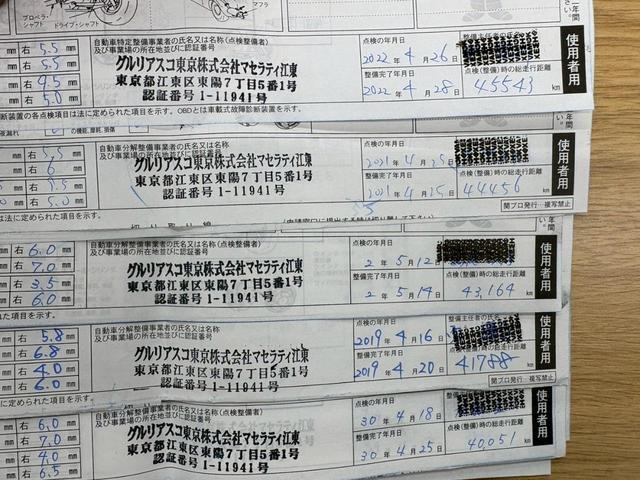 プロペラ・シャフト
ドライブ・シャフト
マフラ
年間
右 5.5 mm
右 5.5 mm
右 4.5 mm
右 5.0 mm
自動車特定整備事業者の氏名又は名称(点検整備者)
及び事業場の所在地並びに認証番号
グルリアスコ東京株式会社マセラティ江東
東京都江東区東陽7丁目5番1号
認証番号 1-11941号
点検の年月日
2022年 4月 26日
整備完了年月日
2022年 4月 28日
整備主任者の氏名
点検(整備)時の総走行距離
45543 km
使用者用
断装置の各点検項目は法に定められた項目を示す。OBDとは車載式故障診断装置を示す。
右 5.5 mm
右 6 mm
右 5.5 mm
右 5.0 mm
自動車分解整備事業者の氏名又は名称(点検整備者)
及び事業場の所在地並びに認証番号
グルリアスコ東京株式会社マセラティ江東
東京都江東区東陽7丁目5番1号
認証番号 1-11941号
点検の年月日
2021年 4月 25日
整備完了年月日
2021年 4月 25日
点検(整備)時の総走行距離
44456 km
使用者用
関プロ発行 複写禁止
は法に定められた項目を示す。
切り取り線
右 6.0 mm
右 7.0 mm
右 3.5 mm
右 6.0 mm
自動車分解整備事業者の氏名又は名称(点検整備者)
及び事業場の所在地並びに認証番号
グルリアスコ東京株式会社マセラティ江東
東京都江東区東陽7丁目5番1号
認証番号 1-11941号
点検の年月日
2年 5月 12日
整備完了年月日
2年 5月 14日
点検(整備)時の総走行距離
43,164 km
使用者用
右 5.8 mm
右 6.8 mm
右 4.0 mm
右 6.0 mm
自動車分解整備事業者の氏名又は名称
及び事業場の所在地並びに認証番号
グルリアスコ東京株式会社マセラティ江東
東京都江東区東陽7丁目5番1号
認証番号 1-11941号
点検の年月日
2019年 4月 16日
整備完了年月日
2019年 4月 20日
整備主任者の氏名
点検(整備)時の総走行距離
41788 km
使用者用
関プロ発行・複写禁止
右 6.0 mm
右 7.0 mm
右 4.0 mm
右 6.5 mm
自動車分解整備事業者の氏名又は名称(点検整備者)
及び事業場の所在地並びに認証番号
グルリアスコ東京株式会社マセラティ江東
東京都江東区東陽7丁目5番1号
認証番号 1-11941号
点検の年月日
30年 4月 18日
整備完了年月日
30年 4月 25日
点検(整備)時の総走行距離
40,051 km
使用者用